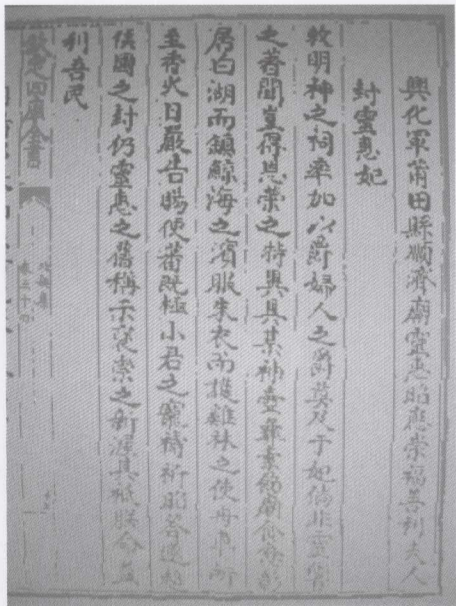 興化軍莆田縣順濟廟靈惠昭應崇福善利夫人
封靈惠妃
敕明神之祠率加以爵婦人之爵莫及于妃倘非靈響
之著聞豈得恩榮之特異具某神素飭廟食愈彰
居白湖而鎮鯨海之濱服朱衣而護雞林之使舟車所
至香火日嚴告賜便蕃既極小君之寵禱祈昭答遂超
侯國之封仍靈惠之舊稱示褒崇之新渥其祗朕命益
利吾民
欽定四庫全書
攻媿集
卷三十四